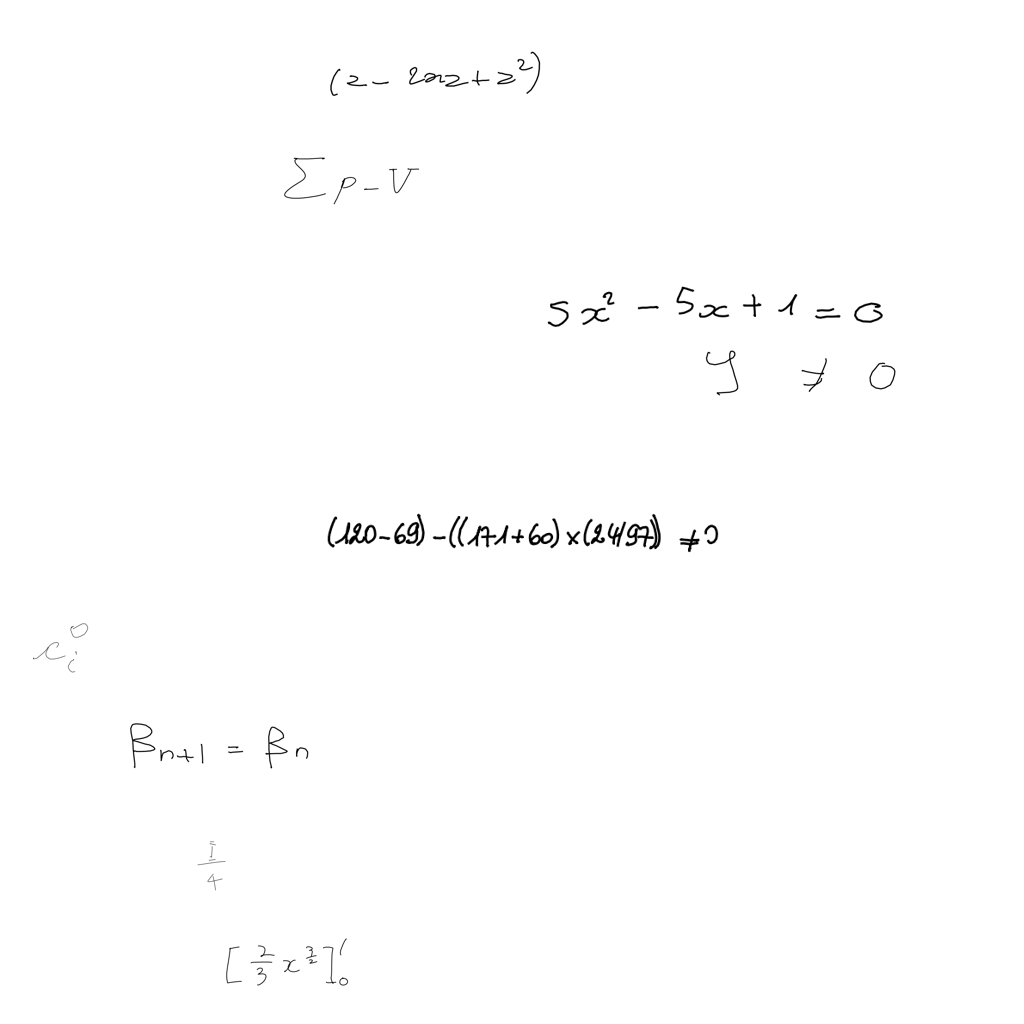 (z - 2xz + z²)
∑ p - V
5x² - 5x + 1 = 0
y ≠ 0
(120-69) - ((171+60) × (24/97)) ≠ 0
c_i^0
β_{n+1} = β_n
I/4
[2/3 x^{3/2}]_0^1